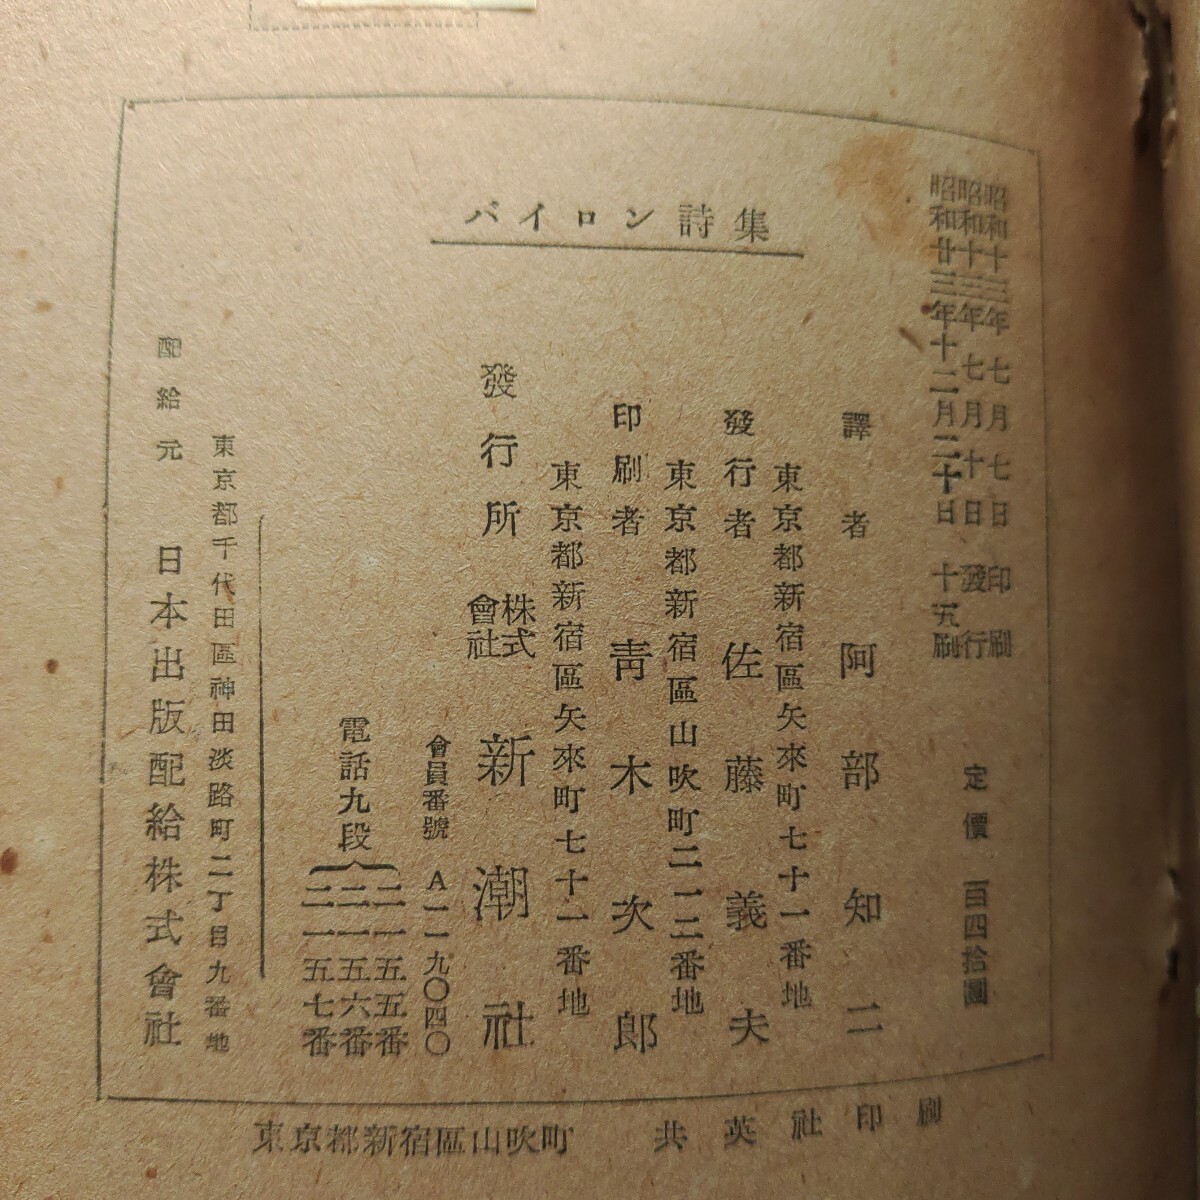 バイロン詩集
昭和十三年七月七日印刷
昭和十三年七月十日發行
昭和廿三年十二月二十日十五刷
定價 百四拾圓
譯者 阿部知二
東京都新宿區矢來町七十一番地
發行者 佐藤義夫
東京都新宿區山吹町二一二番地
印刷者 青木次郎
東京都新宿區矢來町七十一番地
發行所 株式會社 新潮社
會員番號 A一一九〇四〇
電話九段
二一五五番
二一五六番
二一五七番
東京都千代田區神田淡路町二丁目九番地
配給元 日本出版配給株式會社
東京都新宿區山吹町 共英社印刷